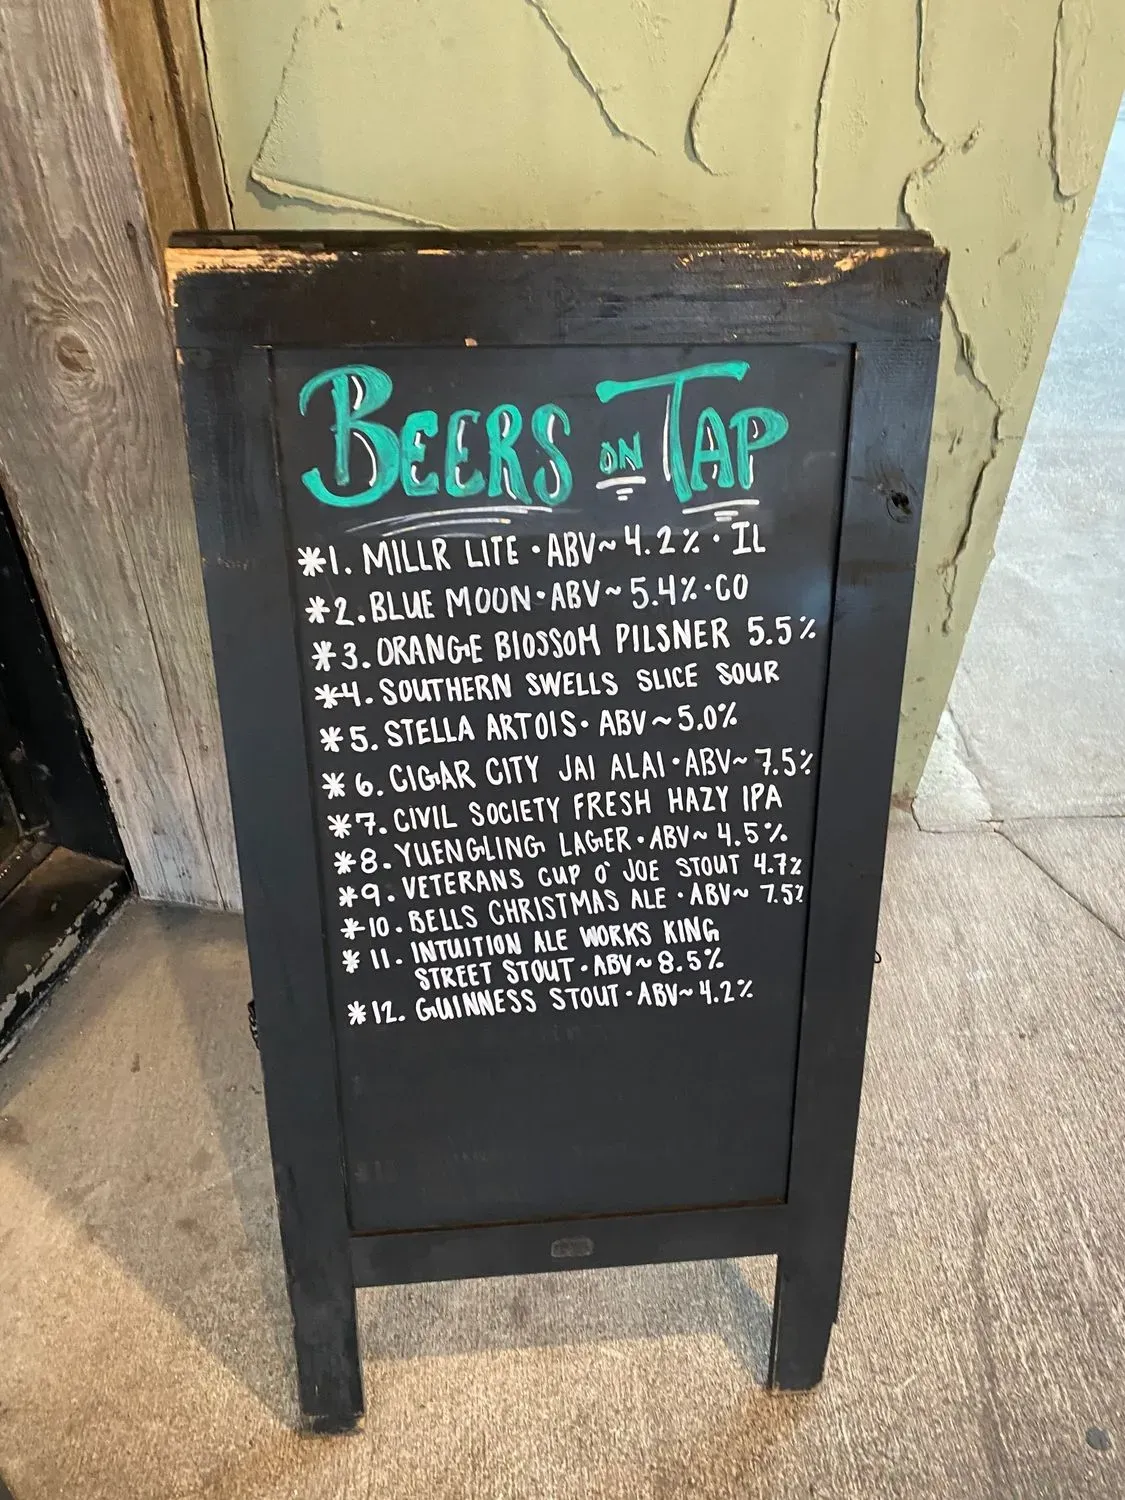 BEERS ON TAP
*1. MILLR LITE • ABV~ 4.2% • IL
*2. BLUE MOON • ABV~ 5.4% • CO
*3. ORANGE BlOSSOM PILSNER 5.5%
*4. SOUTHERN SWELLS SLICE SOUR
*5. STELLA ARTOIS • ABV~ 5.0%
*6. CIGAR CITY JAI ALAI • ABV~ 7.5%
*7. CIVIL SOCIETY FRESH HAZY IPA
*8. YUENGLING LAGER • ABV~ 4.5%
*9. VETERANS CUP O' JOE STOUT 4.7%
*10. BELLS CHRISTMAS ALE • ABV~ 7.5%
*11. INTUITION ALE WORKS KING
STREET STOUT • ABV~ 8.5%
*12. GUINNESS STOUT • ABV~ 4.2%